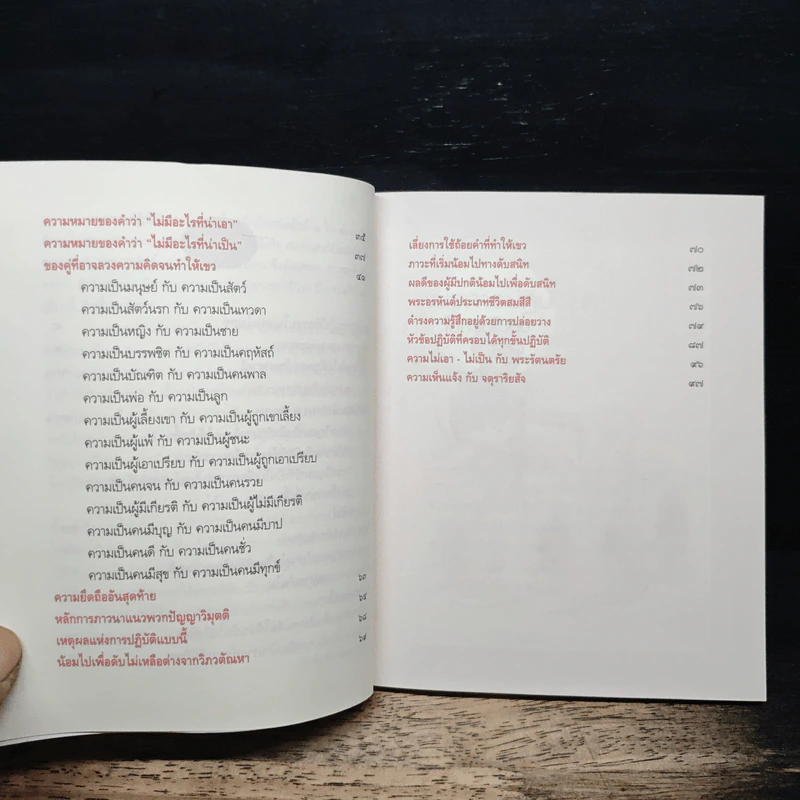 ความหมายของคำว่า "ไม่มีอะไรที่น่าเอา" ๓๕
ความหมายของคำว่า "ไม่มีอะไรที่น่าเป็น" ๓๗
ของคู่ที่อาจลวงความคิดจนทำให้เขว ๔๑
ความเป็นมนุษย์ กับ ความเป็นสัตว์
ความเป็นสัตว์นรก กับ ความเป็นเทวดา
ความเป็นหญิง กับ ความเป็นชาย
ความเป็นบรรพชิต กับ ความเป็นคฤหัสถ์
ความเป็นบัณฑิต กับ ความเป็นคนพาล
ความเป็นพ่อ กับ ความเป็นลูก
ความเป็นผู้เลี้ยงเขา กับ ความเป็นผู้ถูกเขาเลี้ยง
ความเป็นผู้แพ้ กับ ความเป็นผู้ชนะ
ความเป็นผู้เอาเปรียบ กับ ความเป็นผู้ถูกเอาเปรียบ
ความเป็นคนจน กับ ความเป็นคนรวย
ความเป็นผู้มีเกียรติ กับ ความเป็นผู้ไม่มีเกียรติ
ความเป็นคนมีบุญ กับ ความเป็นคนมีบาป
ความเป็นคนดี กับ ความเป็นคนชั่ว
ความเป็นคนมีสุข กับ ความเป็นคนมีทุกข์
ความยึดถืออันสุดท้าย ๖๓
หลักการภาวนาแนวพวกปัญญาวิมุตติ ๖๔
เหตุผลแห่งการปฏิบัติแบบนี้ ๖๘
น้อมไปเพื่อดับไม่เหลือต่างจากวิภวตัณหา ๖๙
เลี่ยงการใช้ถ้อยคำที่ทำให้เขว ๗๐
ภาวะที่เริ่มน้อมไปทางดับสนิท ๗๒
ผลดีของผู้มีปกติน้อมไปเพื่อดับสนิท ๗๓
พระอรหันต์ประเภทชีวิตสมสีสี ๗๖
ดำรงความรู้สึกอยู่ด้วยการปล่อยวาง ๗๙
หัวข้อปฏิบัติที่ครอบได้ทุกขั้นปฏิบัติ ๘๗
ความไม่เอา - ไม่เป็น กับ พระรัตนตรัย ๙๖
ความเห็นแจ้ง กับ จตุราริยสัจ ๙๗